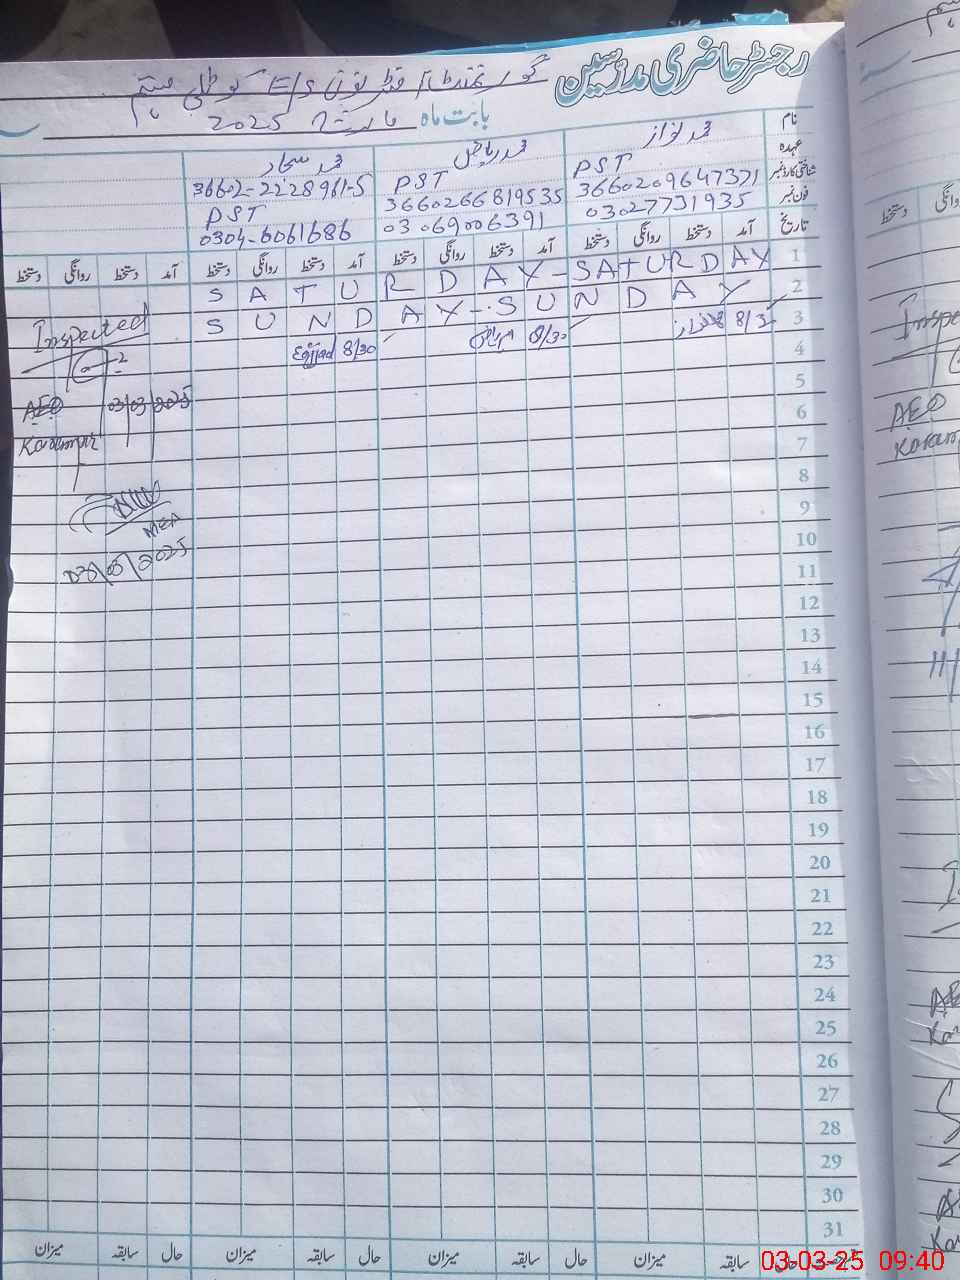 رجسٹر حاضری مدرسین
گورنمنٹ E/S کوٹلی
بابت ماہ مارچ 2025
نام محمد نواز محمد ریاض محمد سجاد
عہدہ PST PST 36602-2228961-5
شناختی کارڈ نمبر 3660209647371 3660266819535 PST
فون نمبر 03027731935 03069006391 0304-6061686
تاریخ آمد دستخط روانگی دستخط آمد دستخط روانگی دستخط آمد دستخط روانگی دستخط آمد دستخط روانگی دستخط
1 SATURDAY - SATURDAY
2 SUNDAY - SUNDAY
3 8/30 8/30 8/30
Inspected
4
5
AEO 03/03/2025
6
Karampur
7
8
9
MEA
10
11
12
13
14
15
16
17
18
19
20
21
22
23
24
25
26
27
28
29
30
31
حال سابقہ میزان حال سابقہ میزان حال سابقہ میزان حال سابقہ میزان
03-03-25 09:40